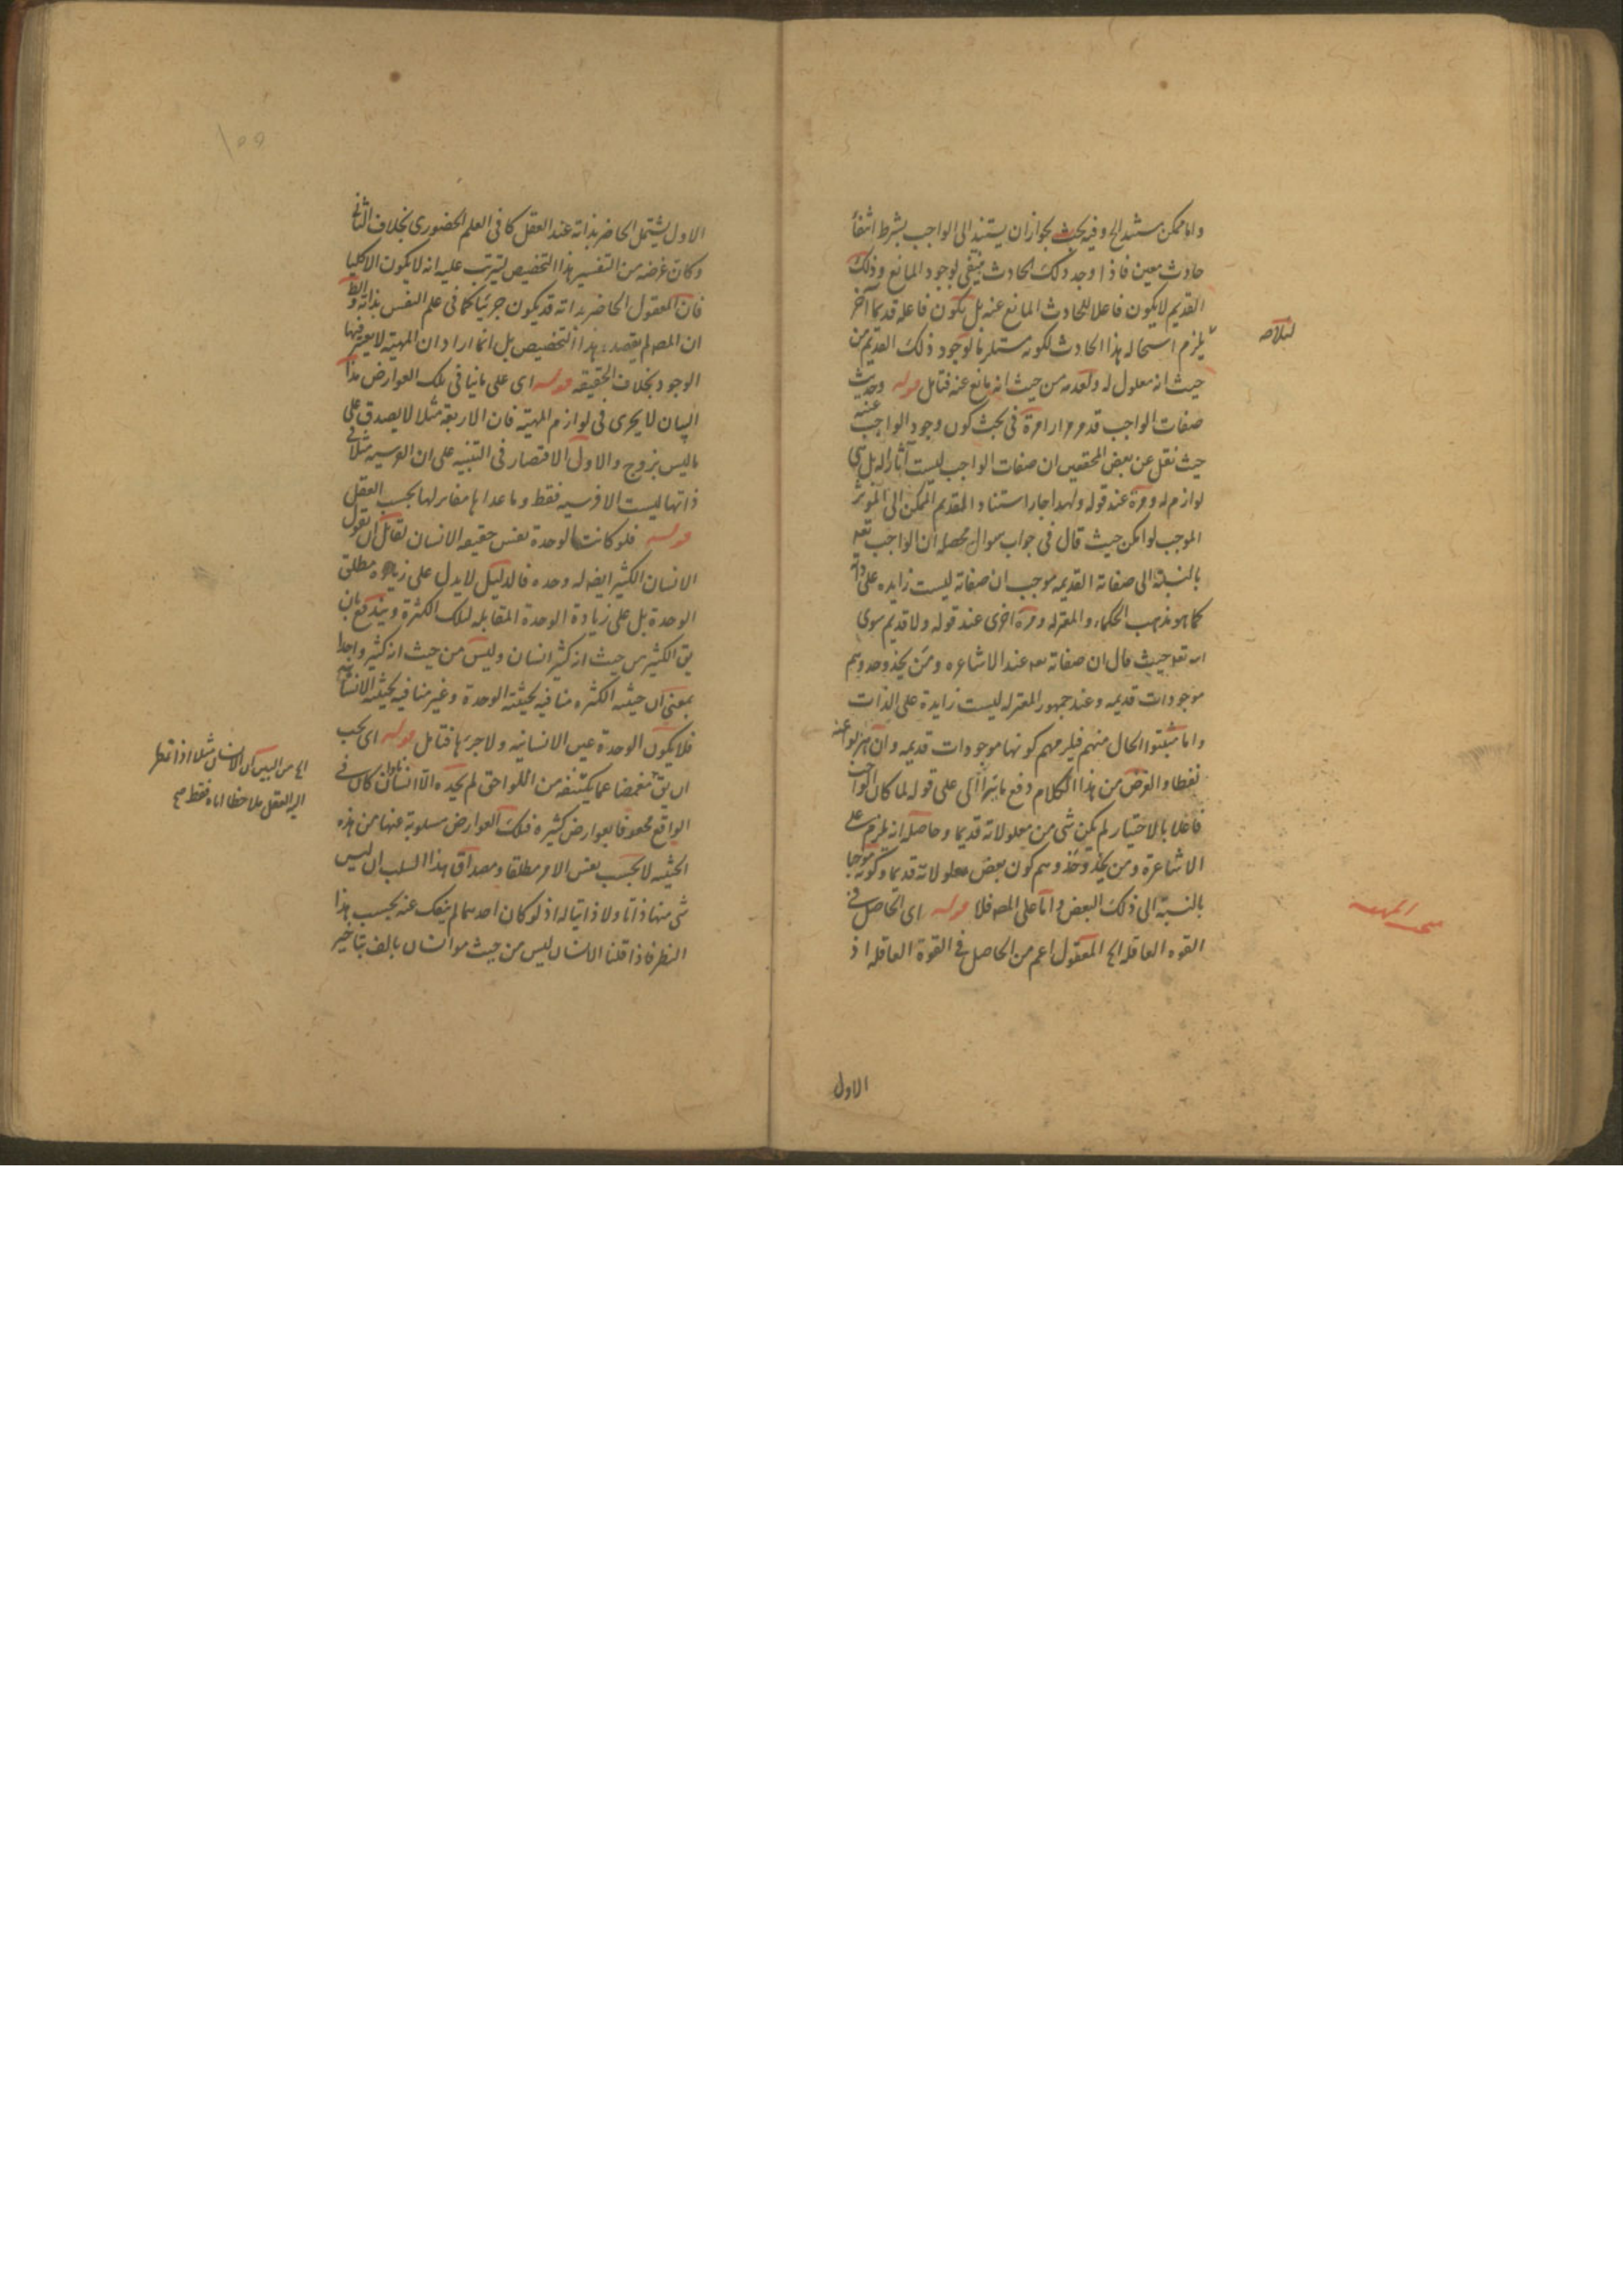 واما ممكن مستند الخ وفيه بحث بجواز ان يستند الى الواجب بشرط انتفاء
حادث معين فاذا وجد ذلك الحادث ينتفى لوجود المانع وذلك
القديم لا يكون فاعلا للحادث المانع عنه بل يكون فاعله قديما آخر
يلزم استحاله هذا الحادث لكونه مستلزما لوجود ذلك القديم من
حيث انه معلول له ولعدمه من حيث انه مانع عنه فتامل قوله وحديث
صفات الواجب قد مر مرارا مرة فى بحث كون وجود الواجب عينه
حيث نقل عن بعض المحققين ان صفات الواجب ليست آثارا له بل هى
لوازم له ومرة عند قوله ولهذا جاز استناد القديم الممكن الى المؤثر
الموجب لو امكن حيث قال فى جواب سوال محصله ان الواجب تعه
بالنسبة الى صفاته القديمه موجب ان صفاته ليست زايده على ذاته
كما هو مذهب الحكماء والمعتزله ومرة اخرى عند قوله ولا قديم سوى
الله تعه حيث قال ان صفاته تعه عند الاشاعره ومن يحذو حذوهم
موجودات قديمه وعند جمهور المعتزله ليست زايدة على الذات
واما مثبتوا الحال منهم فيلزمهم كونها موجودات قديمه وان تحرزوا عنه
لفظا والغرض من هذا الكلام دفع ما يترااى على قوله لما كان الواجب
فاعلا بالاختيار لم يكن شى من معلولاته قديما وحاصله انه يلزم على
الاشاعرة ومن يحذو حذوهم كون بعض معلولاته قديما وكونه موجبا
بالنسبة الى ذلك البعض واما على المصه فلا قوله اى الحاصل فى
القوه العاقله الخ المعقول اعم من الحاصل فى القوة العاقله اذ
الاول
الاول يشتمل الحاضر بذاته عند العقل كما فى العلم الحضورى بخلاف الثانى
وكان غرضه من التفسير هذا التخصيص ليترتب عليه انه لا يكون الا كليا
فان المعقول الحاضر بذاته قد يكون جزئيا كما فى علم النفس بذاته والظ
ان المصه لم يقصد بهذا التخصيص بل انما اراد ان المهية لا يعتبر فيها
الوجود بخلاف الحقيقه قوله اى على ما ينافى تلك العوارض هذا
البيان لا يجرى فى لوازم المهية فان الاربعة مثلا لا يصدق على
ما ليس بزوج والاولى الاقتصار فى التنبيه على ان الفرسيه مثلا فى
ذاتها ليست الا فرسيه فقط وما عداها مغاير لها بحسب العقل
قوله فلو كانت الوحدة نفس حقيقه الانسان لقائل ان يقول
الانسان الكثير ايضه له وحده فالدليل لا يدل على زياده مطلق
الوحدة بل على زيادة الوحدة المقابله لتلك الكثرة ويندفع بان
يق الكثير من حيث انه كثير انسان وليس من حيث انه كثير واحدا
بمعنى ان حيثيه الكثره منافيه لحيثيته الوحدة وغير منافيه لحيثيه الانسانيه
فلا يكون الوحدة عين الانسانيه ولا جزءها فتامل قوله اى يجب
ان يق مغمضا عما يكتنفه من اللواحق لم يجده الا انسانا وان كان فى
الواقع محفوفا بعوارض كثيره فتلك العوارض مسلوبة عنها من هذه
الحيثيه لا بحسب نفس الامر مطلقا ومصداق هذا السلب ان ليس
شى منها ذاتا ولا ذاتيا له اذ لو كان احدهما لم ينفك عنه بحسب هذا
النظر فاذا قلنا الانسان ليس من حيث هو انسان بالف بتاخير
اى من البين ان الانسان مثلا اذا نظر
اليه العقل ملاحظا اياه فقط صح